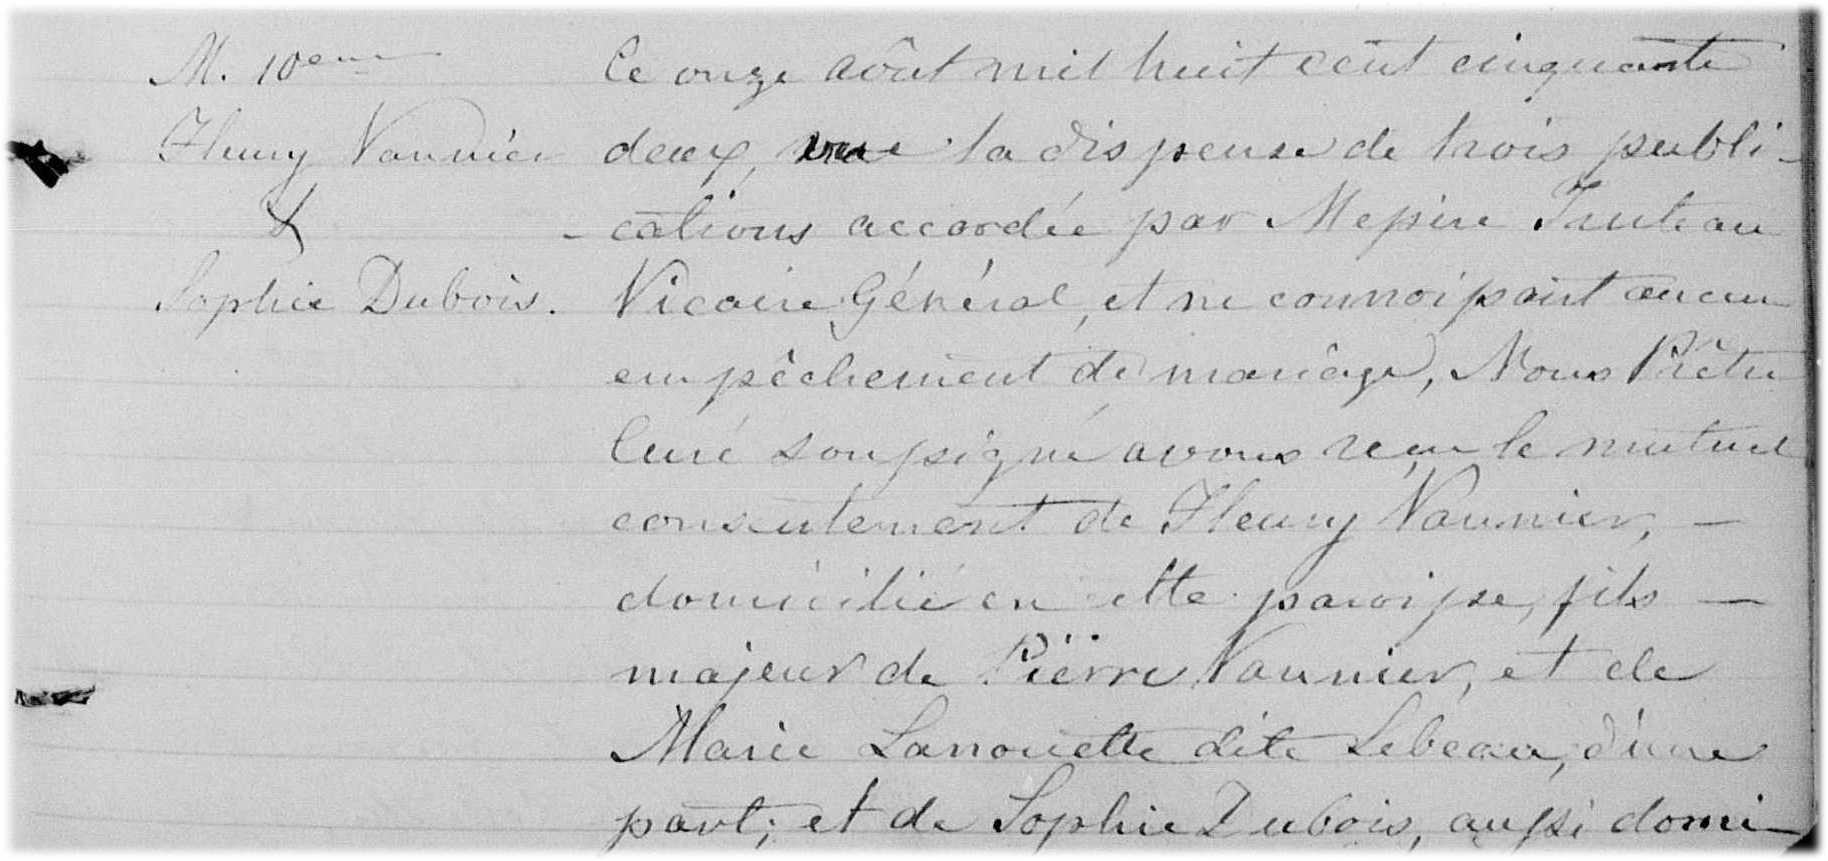 M. 10eme
Fleury Vaunier
&
Sophie Dubois.
Le onze août mil huit cent cinquante
deux, vue la dispense de trois publi-
-cations accordée par Messire Truteau
Vicaire Général, et ne connoissant aucun
empêchement de mariage, Nous Prêtre
Curé soussigné avons reçu le mutuel
consentement de Fleury Vaunier, -
domicilié en cette paroisse, fils -
majeur de Pierre Vaunier, et de
Marie Lanouette dite Lebeau, d'une
part; et de Sophie Dubois, aussi domi-